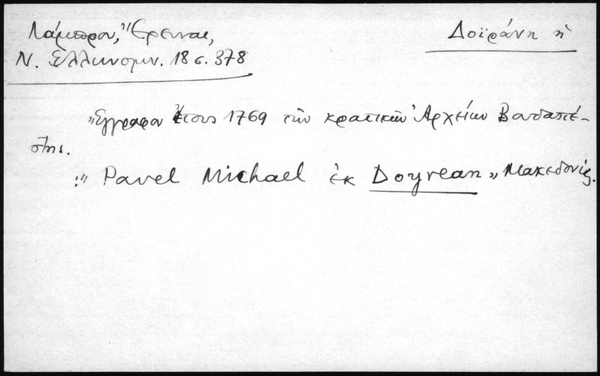 Λάμπρου, "Ερευναι,
Δοϊράνη ἡ
Ν. Ἑλληνομν. 18 σ. 378
"Εγγραφον ἔτους 1769 τῶν κρατικῶν Ἀρχείων Βουδαπέ-
στης.
:" Pavel Michael ἐκ Doyrean " Μακεδονίας.